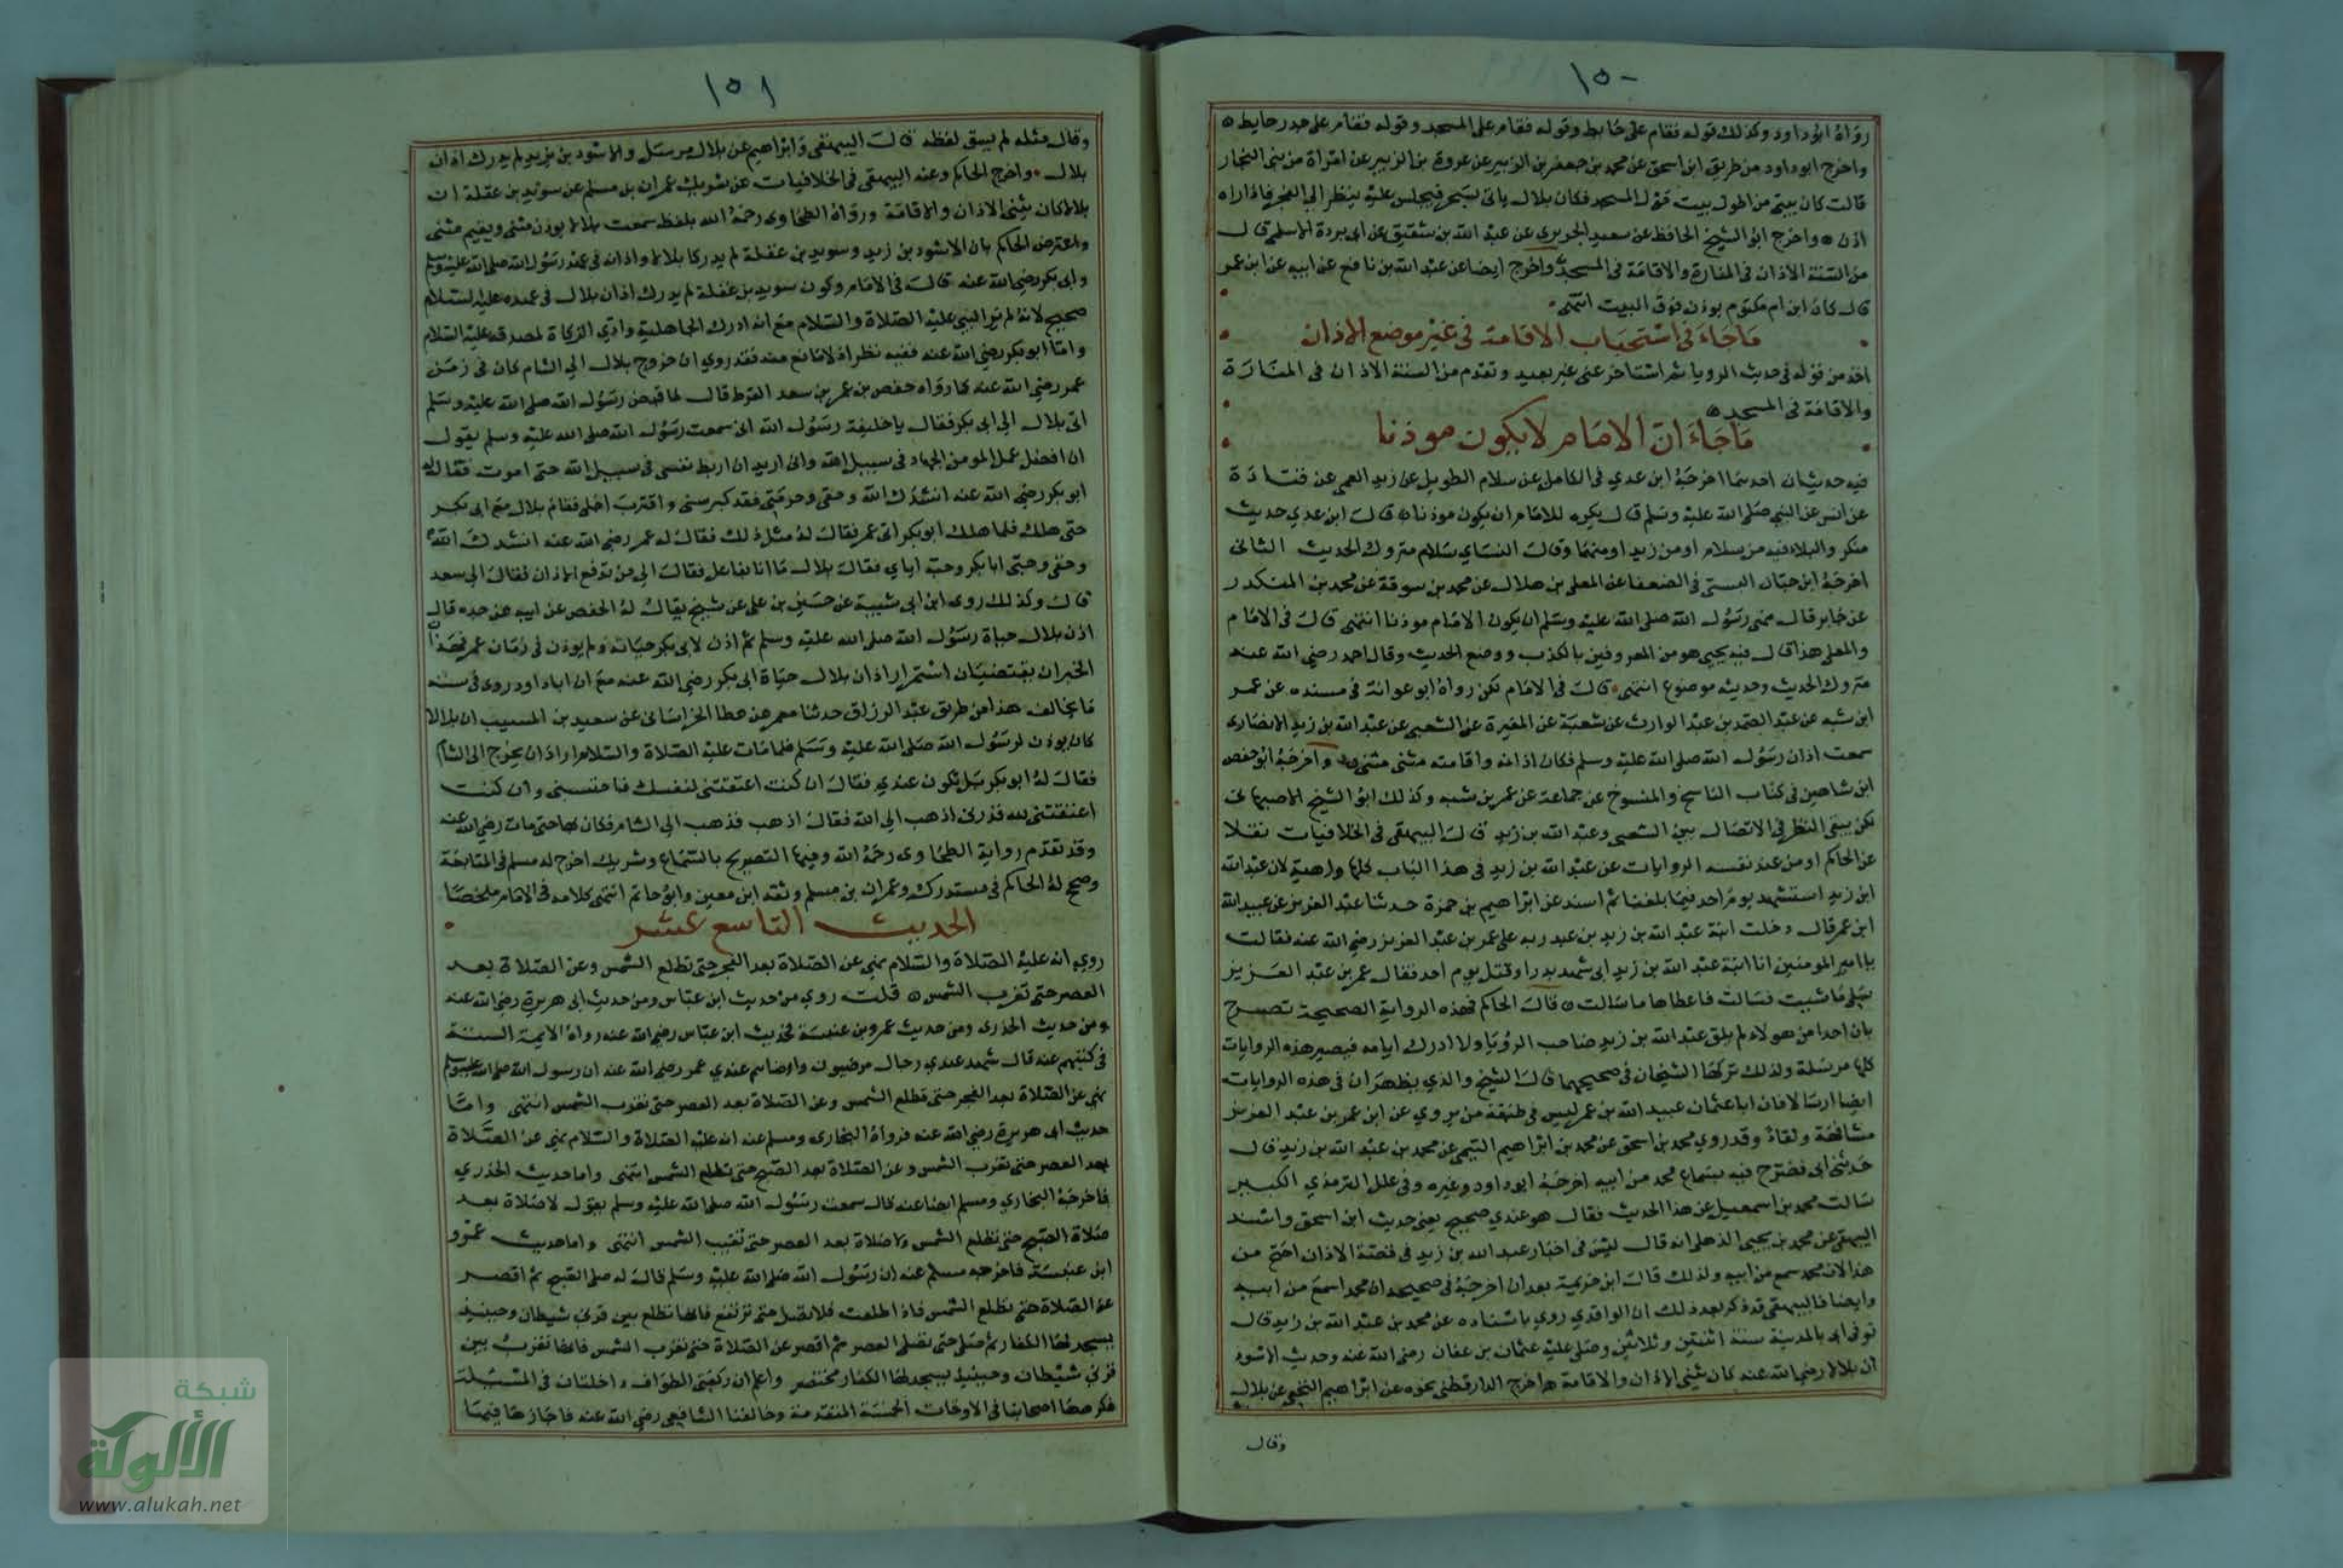 ١٥٠
رواه ابو داود وكذلك قوله فقام على حايط وقوله فقام على المسجد وقوله فقام على جدر حايط
واخرج ابو داود من طريق ابن اسحق عن محمد بن جعفر بن الزبير عن عروة بن الزبير عن امراة من بني النجار
قالت كان بيتي من اطول بيت حول المسجد فكان بلال ياتي بسحر فيجلس عليه ينظر الى الفجر فاذا راه
اذن واخرج ابو الشيخ الحافظ عن سعيد الجريري عن عبد الله بن شقيق عن ابي بردة الاسلمي قال
من السنة الاذان في المنارة والاقامة في المسجد واخرج ايضا عن عبد الله بن نافع عن ابيه عن ابن عمر
قال كان ابن ام مكتوم يوذن فوق البيت انتهى
ما جاء في استحباب الاقامة في غير موضع الاذان
اخذ من قوله في حديث الرويا ثم استاخر عني غير بعيد وتقدم من السنة الاذان في المنارة
والاقامة في المسجد
ما جاء ان الامام لا يكون موذنا
فيه حديثان احدهما اخرجه ابن عدي في الكامل عن سلام الطويل عن زيد العمي عن قتادة
عن انس عن النبي صلى الله عليه وسلم قال يكره للامام ان يكون موذنا قال ابن عدي حديث
منكر والبلاء فيه من سلام او من زيد او منهما وقال النساي سلام متروك الحديث الثاني
اخرجه ابن حبان البستي في الضعفا عن المعلى بن هلال عن محمد بن سوقة عن محمد بن المنكدر
عن جابر قال نهى رسول الله صلى الله عليه وسلم ان يكون الامام موذنا انتهى قال في الامام
والمعلى هذا قال فيه يحيى هو من المعروفين بالكذب ووضع الحديث وقال احمد رضي الله عنه
متروك الحديث وحديثه موضوع انتهى قال في الامام لكن رواه ابو عوانة في مسنده عن عمر
ابن شبه عن عبد الصمد بن عبد الوارث عن شعبة عن المغيرة عن الشعبي عن عبد الله بن زيد الانصاري
سمعت اذان رسول الله صلى الله عليه وسلم فكان اذانه واقامته مثنى مثنى واخرجه ابو حفص
ابن شاهين في كتاب الناسخ والمنسوخ عن جماعة عن عمر بن شبه وكذلك ابو الشيخ الاصبهاني
لكن يبقى النظر في الاتصال بين الشعبي وعبد الله بن زيد قال البيهقي في الخلافيات نقلا
عن الحاكم او من عند نفسه الروايات عن عبد الله بن زيد في هذا الباب كلها واهية لان عبد الله
ابن زيد استشهد يوم احد فيما بلغنا ثم اسند عن ابراهيم بن حمزة حدثنا عبد العزيز عن عبيد الله
ابن عمر قال دخلت ابنة عبد الله بن زيد بن عبد ربه على عمر بن عبد العزيز رضي الله عنه فقالت
يا امير المومنين انا ابنة عبد الله بن زيد ابي شهد بدرا وقتل يوم احد فقال عمر بن عبد العزيز
سلي ما شيت فسالت فاعطاها ما سالت قال الحاكم فهذه الرواية الصحيحة تصرح
بان احدا من هولاء لم يلق عبد الله بن زيد صاحب الرؤيا ولا ادرك ايامه فيصير هذه الروايات
كلها مرسلة ولذلك تركها الشيخان في صحيحيهما قال الشيخ والذي يظهر ان في هذه الروايات
ايضا ارسالا فان ابا عثمان عبيد الله بن عمر ليس في طبقة من يروي عن ابن عمر بن عبد العزيز
مشافهة ولقاء وقد روي محمد بن اسحق عن محمد بن ابراهيم التيمي عن محمد بن عبد الله بن زيد قال
حدثني ابي فصرح فيه بسماع محمد من ابيه اخرجه ابو داود وغيره وفي علل الترمذي الكبير
سالت محمد بن اسمعيل عن هذا الحديث فقال هو عندي صحيح يعني حديث ابن اسحق واسند
البيهقي عن محمد بن يحيى الذهلي انه قال ليس في اخبار عبد الله بن زيد في قصة الاذان اصح من
هذا لان محمد سمع من ابيه ولذلك قال ابن خزيمة بعد ان اخرجه في صحيحه ان محمدا سمع من ابيه
وايضا فالبيهقي قد ذكر بعد ذلك ان الواقدي روي باسناده عن محمد بن عبد الله بن زيد قال
توفي ابي بالمدينة سنة اثنتين وثلاثين وصلى عليه عثمان بن عفان رضي الله عنه وحديث الاسود
ان بلالا رضي الله عنه كان يثني الاذان والاقامة واخرج الدارقطني نحوه عن ابراهيم النخعي عن بلال
وقال
١٥١
وقال مثله لم يسق لفظه قال البيهقي وابراهيم عن بلال مرسل والاسود بن يزيد لم يدرك اذان
بلال واخرج الحاكم وعنه البيهقي في الخلافيات عن شريك عن عمران بن مسلم عن سويد بن غفلة ان
بلالا كان يثني الاذان والاقامة ورواه الطحاوي رحمه الله بلفظ سمعت بلالا يوذن مثنى ويقيم مثنى
واعترض الحاكم بان الاسود بن زيد وسويد بن غفلة لم يدركا بلالا واذانه في عهد رسول الله صلى الله عليه وسلم
وابي بكر رضي الله عنه قال في الامام وكون سويد بن غفلة لم يدرك اذان بلال في عهده عليه السلام
صحيح لانه لم ير النبي عليه الصلاة والسلام مع انه ادرك الجاهلية وادي الزكاة لمصدقه عليه السلام
واما ابو بكر رضي الله عنه ففيه نظر اذ لا مانع منه فقد روي ان خروج بلال الى الشام كان في زمن
عمر رضي الله عنه كما رواه حفص بن عمر بن سعد القرظ قال لما قبض رسول الله صلى الله عليه وسلم
اتى بلال الى ابي بكر فقال يا خليفة رسول الله اني سمعت رسول الله صلى الله عليه وسلم يقول
ان افضل عمل المومن الجهاد في سبيل الله واني اريد ان اربط نفسي في سبيل الله حتى اموت فقال له
ابو بكر رضي الله عنه انشدك الله وحقي وحرمتي فقد كبر سني واقترب اجلي فقام بلال مع ابي بكر
حتى هلك فلما هلك ابو بكر اتى عمر فقال له مثل ذلك فقال له عمر رضي الله عنه انشدك الله
وحقي وحبي ابا بكر وحبه اياي فقال بلال ما انا بفاعل فقال الى من تدفع الاذان فقال الى سعد
قال وكذلك روى ابن ابي شيبة عن حسين بن علي عن شيخ يقال له الحفص عن ابيه عن جده قال
اذن بلال حياة رسول الله صلى الله عليه وسلم ثم اذن لابي بكر حياته ولم يوذن في زمان عمر فهذان
الخبران يقتضيان استمرار اذان بلال حياة ابي بكر رضي الله عنه مع ان ابا داود روى في سننه
ما يخالف هذا من طريق عبد الرزاق حدثنا معمر عن عطا الخراساني عن سعيد بن المسيب ان بلالا
كان يوذن لرسول الله صلى الله عليه وسلم فلما مات عليه الصلاة والسلام اراد ان يخرج الى الشام
فقال له ابو بكر بل تكون عندي فقال ان كنت اعتقتني لنفسك فاحتبسني وان كنت
اعتقتني لله فذرني اذهب الى الله فقال اذهب فذهب الى الشام فكان بها حتى مات رضي الله عنه
وقد تقدم رواية الطحاوي رحمه الله وفيها التصريح بالسماع وشريك اخرج له مسلم في المتابعة
وصح له الحاكم في مستدركه وعمران بن مسلم وثقه ابن معين وابو حاتم انتهى كلامه في الامام ملخصا
الحديث التاسع عشر
روي انه عليه الصلاة والسلام نهى عن الصلاة بعد الفجر حتى تطلع الشمس وعن الصلاة بعد
العصر حتى تغرب الشمس قلت روي من حديث ابن عباس ومن حديث ابي هريرة رضي الله عنه
ومن حديث الخدري ومن حديث عمرو بن عنبسة فحديث ابن عباس رضي الله عنه رواه الايمة الستة
في كتبهم عنه قال شهد عندي رجال مرضيون وارضاهم عندي عمر رضي الله عنه ان رسول الله صلى الله عليه وسلم
نهى عن الصلاة بعد الفجر حتى تطلع الشمس وعن الصلاة بعد العصر حتى تغرب الشمس انتهى واما
حديث ابي هريرة رضي الله عنه فرواه البخاري ومسلم عنه انه عليه الصلاة والسلام نهى عن الصلاة
بعد العصر حتى تغرب الشمس وعن الصلاة بعد الصبح حتى تطلع الشمس انتهى واما حديث الخدري
فاخرجه البخاري ومسلم ايضا عنه قال سمعت رسول الله صلى الله عليه وسلم يقول لا صلاة بعد
صلاة الصبح حتى تطلع الشمس ولا صلاة بعد العصر حتى تغيب الشمس انتهى واما حديث عمرو
ابن عنبسة فاخرجه مسلم عنه ان رسول الله صلى الله عليه وسلم قال له صل الصبح ثم اقصر
عن الصلاة حتى تطلع الشمس فاذا طلعت فلا تصل حتى ترتفع فانها تطلع بين قرني شيطان وحينيذ
يسجد لها الكفار ثم صل حتى تصلي العصر ثم اقصر عن الصلاة حتى تغرب الشمس فانها تغرب بين
قرني شيطان وحينيذ يسجد لها الكفار مختصر واعلم ان ركعتي الطواف داخلتان في المسيلة
فكرهها اصحابنا في الاوقات الخمسة المتقدمة وخالفنا الشافعي رضي الله عنه فاجازها فيها
شبكة
الألوكة
www.alukah.net